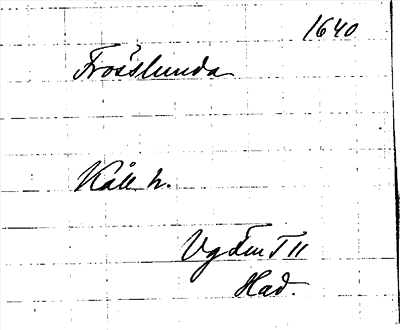 1640
Frööslunda
Kåll h.
Vg
T 11
Had.